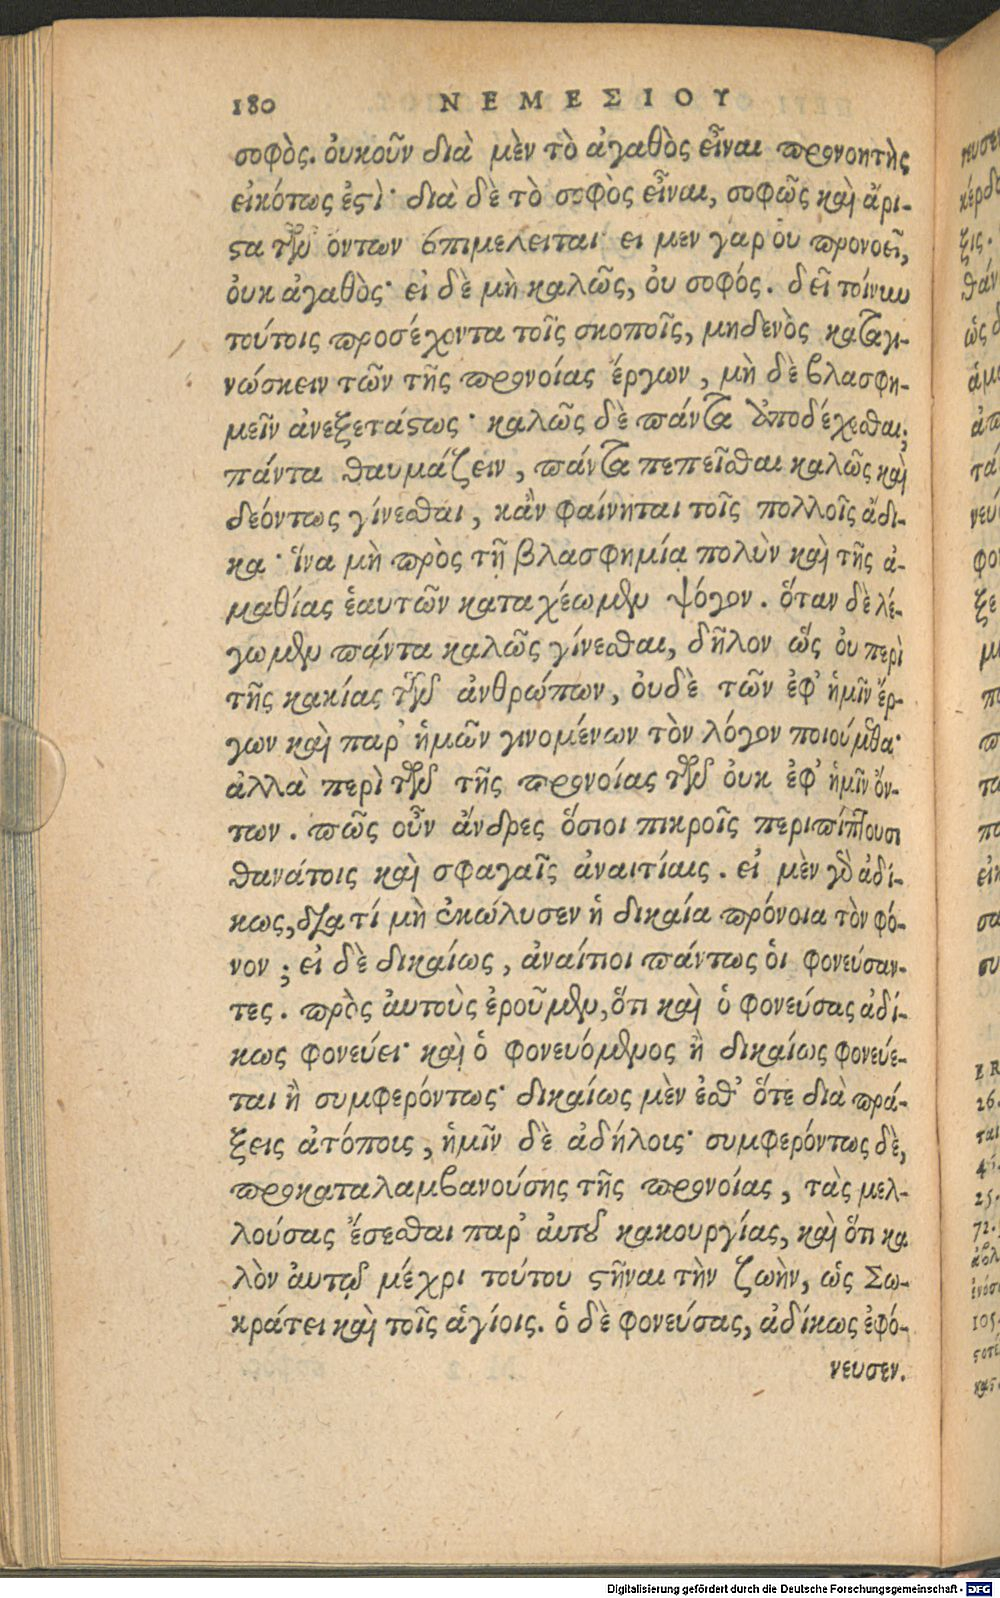 180 ΝΕΜΕΣΙΟΥ
σοφὸς. ὀυκοῦν διὰ μὲν τὸ ἀγαθὸς εἶναι προνοητὴς
εἰκότως ἐστὶ· διὰ δὲ τὸ σοφὸς εἶναι, σοφῶς καὶ ἄρι-
στα τῶν ὄντων ἐπιμελεῖται· ει μεν γαρ ὀυ προνοεῖ,
ὀυκ ἀγαθὸς· εἰ δὲ μὴ καλῶς, ὀυ σοφός. δεῖ τοίνυν
τούτοις προσέχοντα τοῖς σκοποῖς, μηδενὸς καταγι-
νώσκειν τῶν τῆς προνοίας ἔργων, μὴ δὲ βλασφη-
μεῖν ἀνεξετάστως· καλῶς δὲ πάντα ἀποδέχεσθαι,
πάντα θαυμάζειν, πάντα πεπεῖσθαι καλῶς καὶ
δεόντως γίνεσθαι, κἂν φαίνηται τοῖς πολλοῖς ἄδι-
κα· ἵνα μὴ πρὸς τῇ βλασφημίᾳ πολὺν καὶ τῆς ἀ-
μαθίας ἑαυτῶν καταχέωμεν ψόγον. ὅταν δὲ λέ-
γωμεν πάντα καλῶς γίνεσθαι, δῆλον ὥς ὀυ περὶ
τῆς κακίας τῶν ἀνθρώπων, ὀυδὲ τῶν ἐφ᾽ ἡμῖν ἔρ-
γων καὶ παρ᾽ ἡμῶν γινομένων τὸν λόγον ποιούμεθα·
ἀλλὰ περὶ τῶν τῆς προνοίας τῶν ὀυκ ἐφ᾽ ἡμῖν ὄν-
των. πῶς οὖν ἄνδρες ὅσιοι πικροῖς περιπίπτουσι
θανάτοις καὶ σφαγαῖς ἀναιτίαις. εἰ μὲν γὸ ἀδί-
κως, διατί μὴ ἐκώλυσεν ἡ δικαία πρόνοια τὸν φό-
νον; εἰ δὲ δικαίως, ἀναίτιοι πάντως ὁι φονεύσαν-
τες. πρὸς ἀυτοὺς ἐροῦμεν, ὅτι καὶ ὁ φονεύσας ἀδί-
κως φονεύει· καὶ ὁ φονευόμενος ἢ δικαίως φονεύε-
ται ἢ συμφερόντως· δικαίως μὲν ἐσθ᾽ ὅτε διὰ πρά-
ξεις ἀτόποις, ἡμῖν δὲ ἀδήλοις· συμφερόντως δὲ,
προκαταλαμβανούσης τῆς προνοίας, τὰς μελ-
λούσας ἔσεσθαι παρ᾽ ἀυτοῦ κακουργίας, καὶ ὅτι κα
λὸν ἀυτῷ μέχρι τούτου στῆναι τὴν ζωὴν, ὡς Σω-
κράτει καὶ τοῖς ἁγίοις. ὁ δὲ φονεύσας, ἀδίκως ἐφό-
νευσεν.
Digitalisierung gefördert durch die Deutsche Forschungsgemeinschaft - DFG